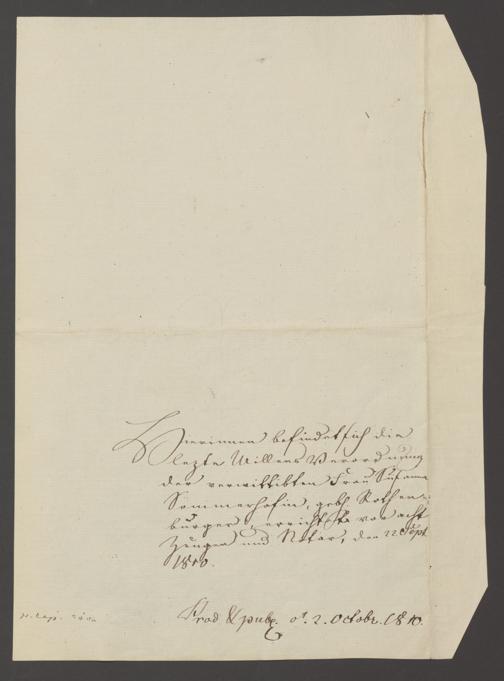 Hierinnen befindet sich die
lezte Willens Verordnung
der verwittibten Frau Susanna
Sommerhofin, gebh. Rothen-
burger, errichtet vor acht
Zeugen und Notar, den 22 Sept.
1810.
Prod & publ. d. 2. Octobr. 1810.